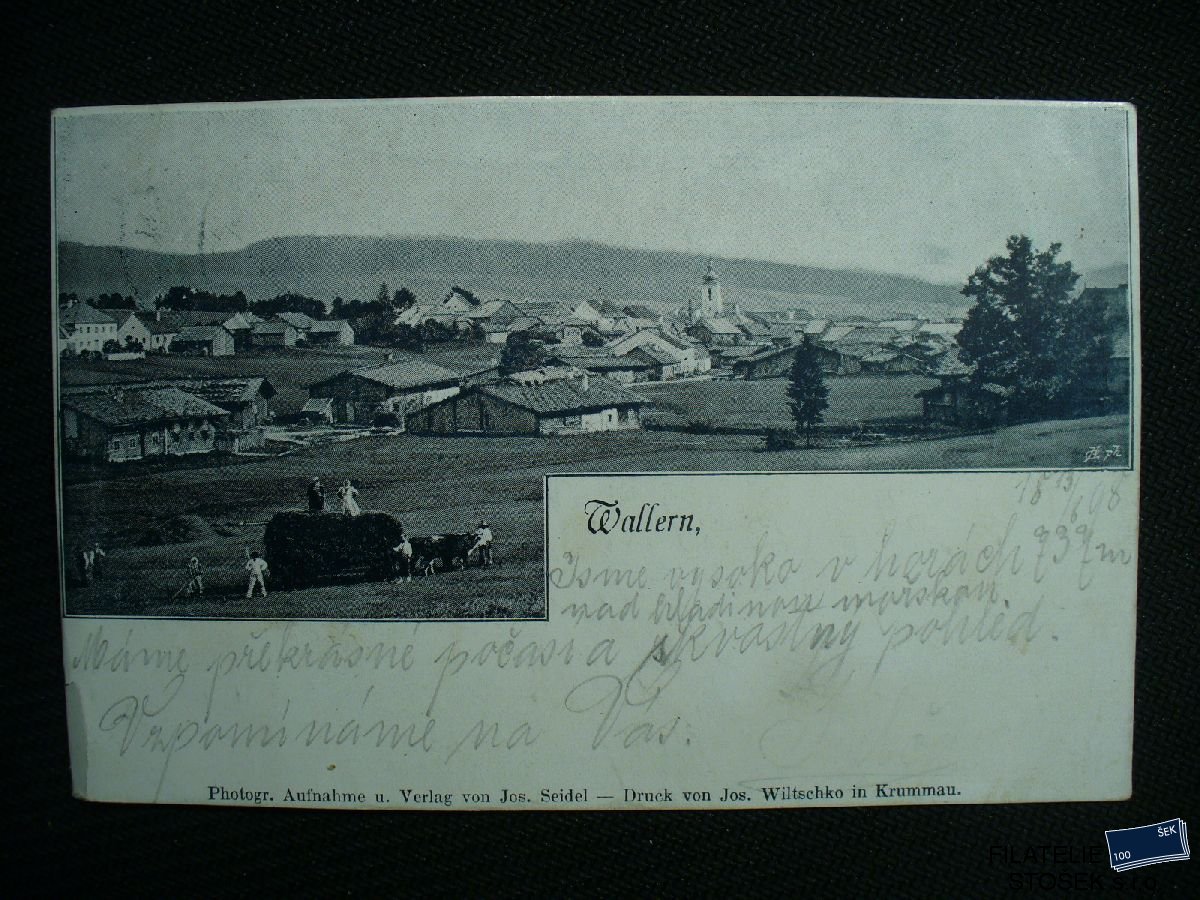 Wallern,
18 13/8 98
Jsme vysoko v horách 737m
nad hladinou mořskou.
Máme překrásné počasí a skvostný pohled.
Vzpomínáme na Vás.
Photogr. Aufnahme u. Verlag von Jos. Seidel — Druck von Jos. Wiltschko in Krummau.
ŠEK
100
FILATELIE
STOSEK s.r.o.